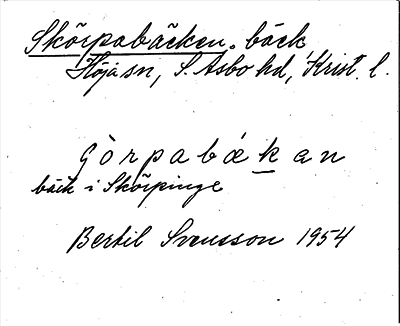 Skörpabäcken. bäck
Höja sn, S. Åsbo hd, Krist. l.
gòrpabækan
bäck i Skörpinge
Bertil Svensson 1954